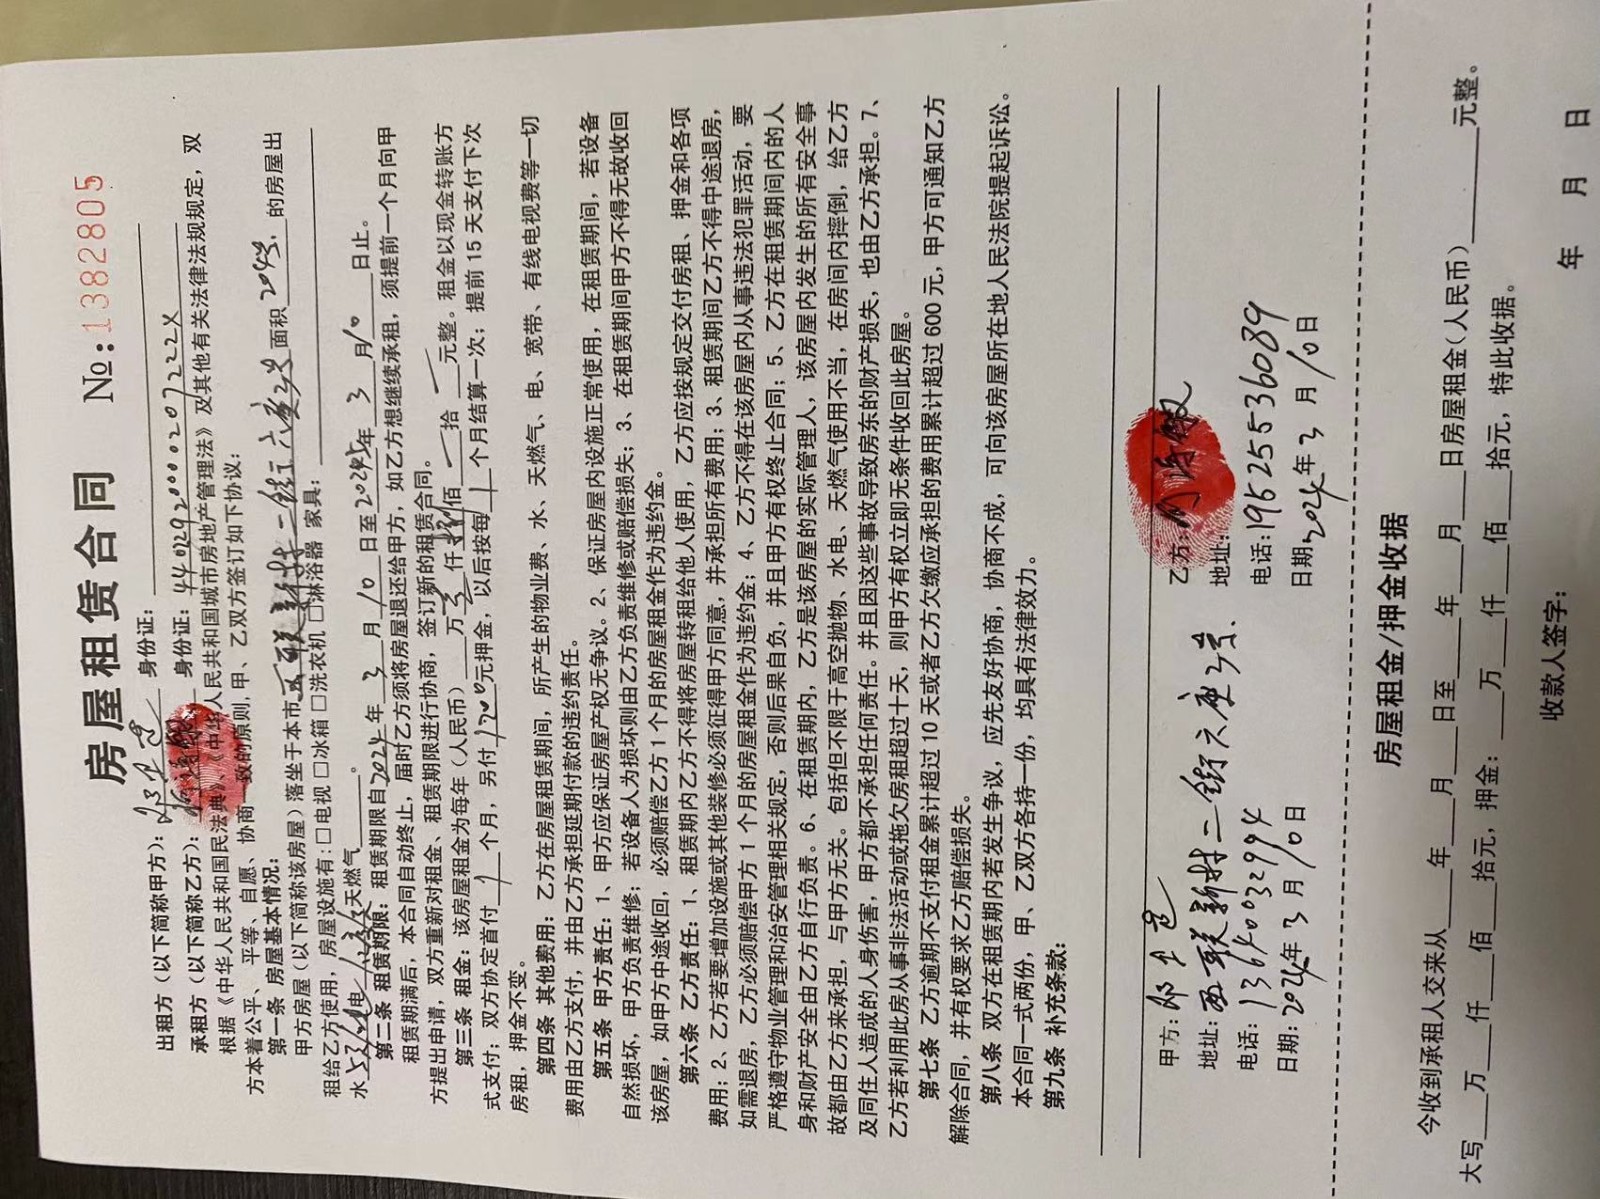 房屋租赁合同 №:1382805
出租方（以下简称甲方）： 身份证：
承租方（以下简称乙方）： 身份证：4402920000207222X
根据《中华人民共和国民法典》、《中华人民共和国城市房地产管理法》及其他有关法律法规规定，双
方本着公平、平等、自愿、协商一致的原则，甲、乙双方签订如下协议：
第一条 房屋基本情况：
甲方房屋（以下简称该房屋）落坐于本市西联新村二街六座 面积 的房屋出
租给乙方使用，房屋设施有：□电视 □冰箱 □洗衣机 □淋浴器 家具：
水 电 天燃气 。
第二条 租赁期限：租赁期限自2024年3月10日至 年3月10日止。
租赁期满后，本合同自动终止，届时乙方须将房屋退还给甲方，如乙方想继续承租，须提前一个月向甲
方提出申请，双方重新对租金、租赁期限进行协商，签订新的租赁合同。
第三条 租金：该房屋租金为每年（人民币） 万 仟 佰 拾 元整。租金以现金转账方
式支付；双方协定首付1个月，另付1200元押金，以后按每1个月结算一次；提前 15 天支付下次
房租，押金不变。
第四条 其他费用：乙方在房屋租赁期间，所产生的物业费、水、天燃气、电、宽带、有线电视费等一切
费用由乙方支付，并由乙方承担延期付款的违约责任。
第五条 甲方责任：1、甲方应保证房屋产权无争议。2、保证房屋内设施正常使用，在租赁期间，若设备
自然损坏，甲方负责维修；若设备人为损坏则由乙方负责维修或赔偿损失；3、在租赁期间甲方不得无故收回
该房屋，如甲方中途收回，必须赔偿乙方 1 个月的房屋租金作为违约金。
第六条 乙方责任：1、租赁期内乙方不得将房屋转租给他人使用，乙方应按规定交付房租、押金和各项
费用；2、乙方若要增加设施或其他装修必须征得甲方同意，并承担所有费用；3、租赁期间乙方不得中途退房，
如需退房，乙方必须赔偿甲方 1 个月的房屋租金作为违约金；4、乙方不得在该房屋内从事违法犯罪活动，要
严格遵守物业管理和治安管理相关规定，否则后果自负，并且甲方有权终止合同；5、乙方在租赁期间内的人
身和财产安全由乙方自行负责。6、在租赁期内，乙方是该房屋的实际管理人，该房屋内发生的所有安全事
故都由乙方来承担，与甲方无关。包括但不限于高空抛物、水电、天燃气使用不当，在房间内摔倒，给乙方
及同住人造成的人身伤害，甲方都不承担任何责任。并且因这些事故导致房东的财产损失，也由乙方承担。7、
乙方若利用此房从事非法活动或拖欠房租超过十天，则甲方有权立即无条件收回此房屋。
第七条 乙方逾期不支付租金累计超过 10 天或者乙方欠缴应承担的费用累计超过 600 元，甲方可通知乙方
解除合同，并有权要求乙方赔偿损失。
第八条 双方在租赁期内若发生争议，应先友好协商，协商不成，可向该房屋所在地人民法院提起诉讼。
本合同一式两份，甲、乙双方各持一份，均具有法律效力。
第九条 补充条款：
甲方： 乙方：
地址：西联新村二街六座 地址：
电话：13640032994 电话：19525536089
日期：2024年3月10日 日期：2024年3月10日
房屋租金/押金收据
今收到承租人交来从 年 月 日至 年 月 日房屋租金（人民币）
大写 万 仟 佰 拾元，押金： 万 仟 佰 拾元，特此收据。 元整。
收款人签字： 年 月 日